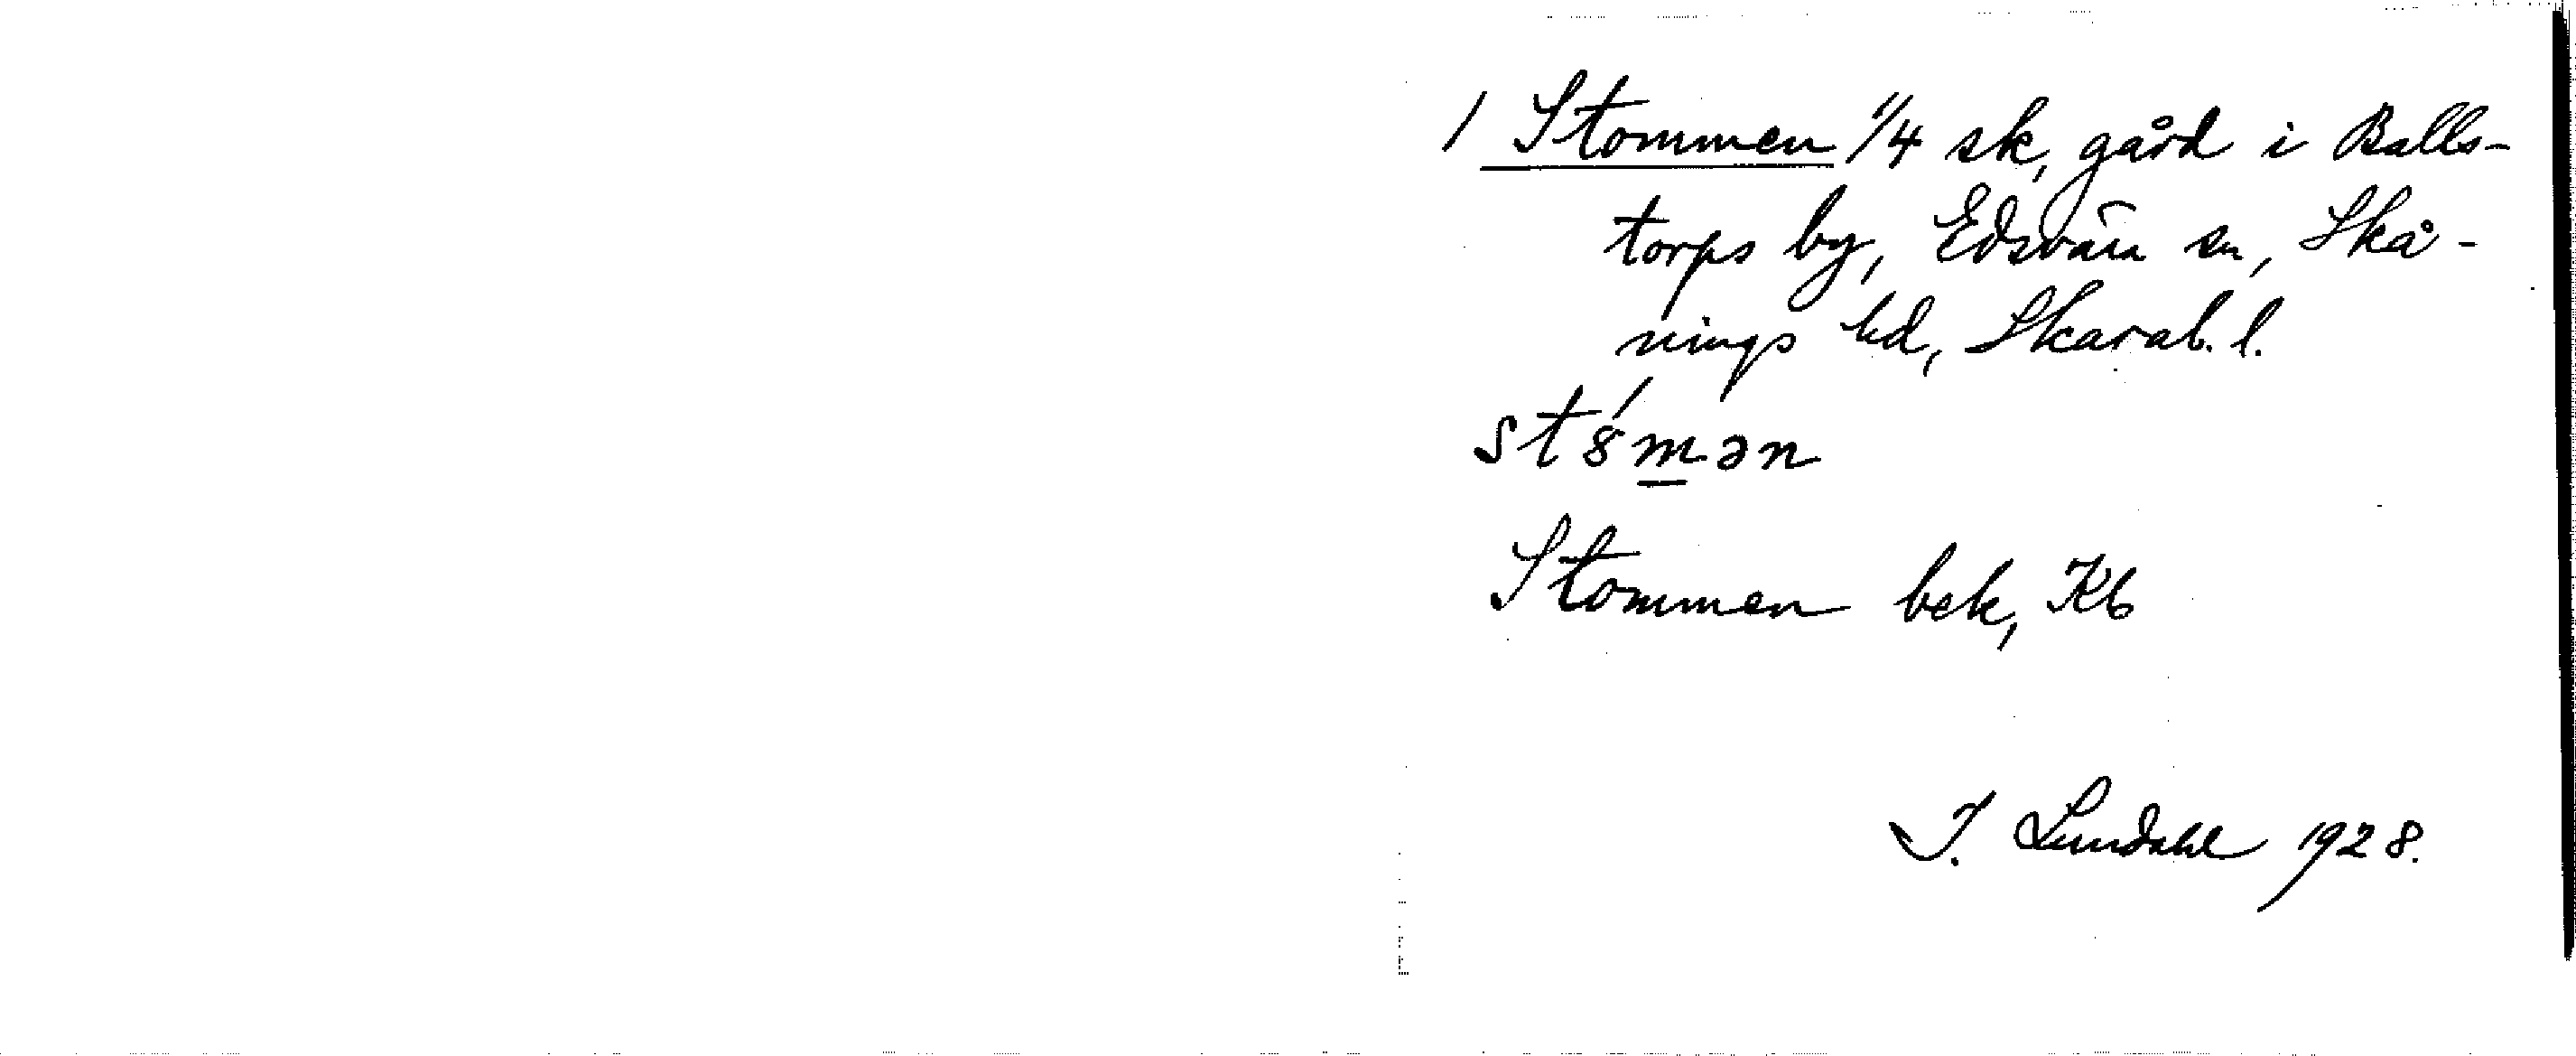 1 Stommen 1/4 sk, gård i Balls-
torps by, Edsvära sn, Skå-
nings hd, Skarab. l.
st8́mən
Stommen bek, Kb
I. Lundahl 1928.